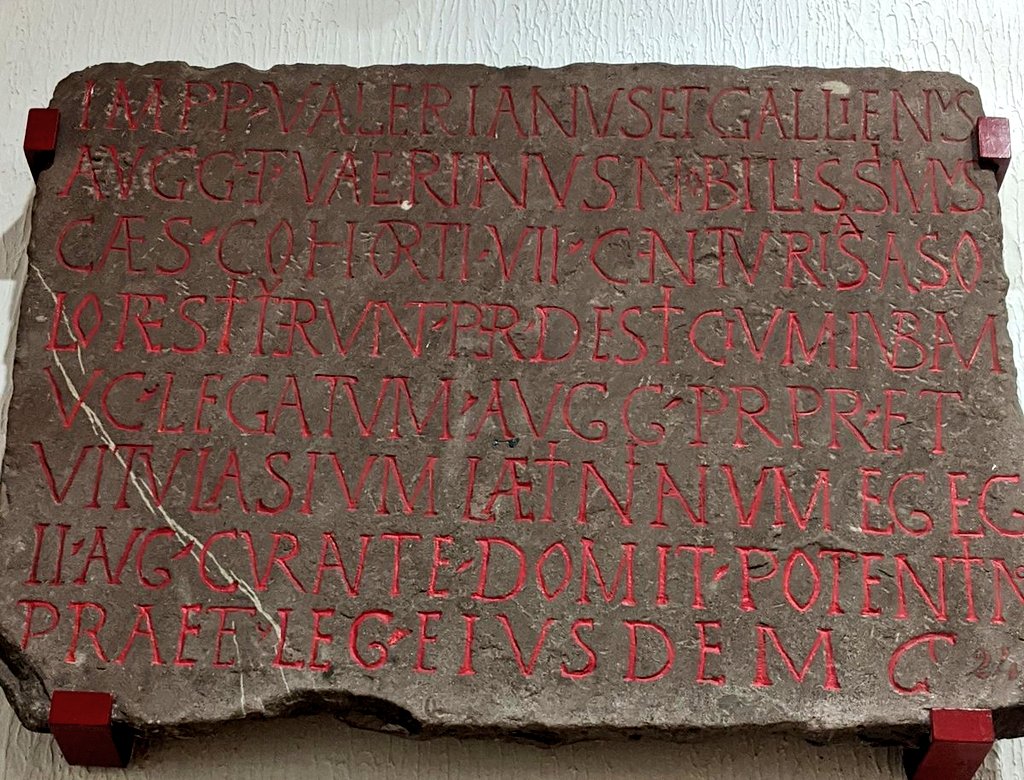 IMPP·VALERIANVS ET GALLIENVS
AVGG·ET VALERIANVS NOBILISSIMVS
CAES·COHORTI·VII·CENTVRIAS A SO
LO RESTITVERVNT·PER·DESTICIVM IVBAM
VC·LEGATVM·AVGG·PR PR·ET
VITVLASIVM LAETINIANVM LEG LEG
II·AVG·CVRANTE·DOMIT·POTENTINO
PRAEF·LEG·EIVSDEM